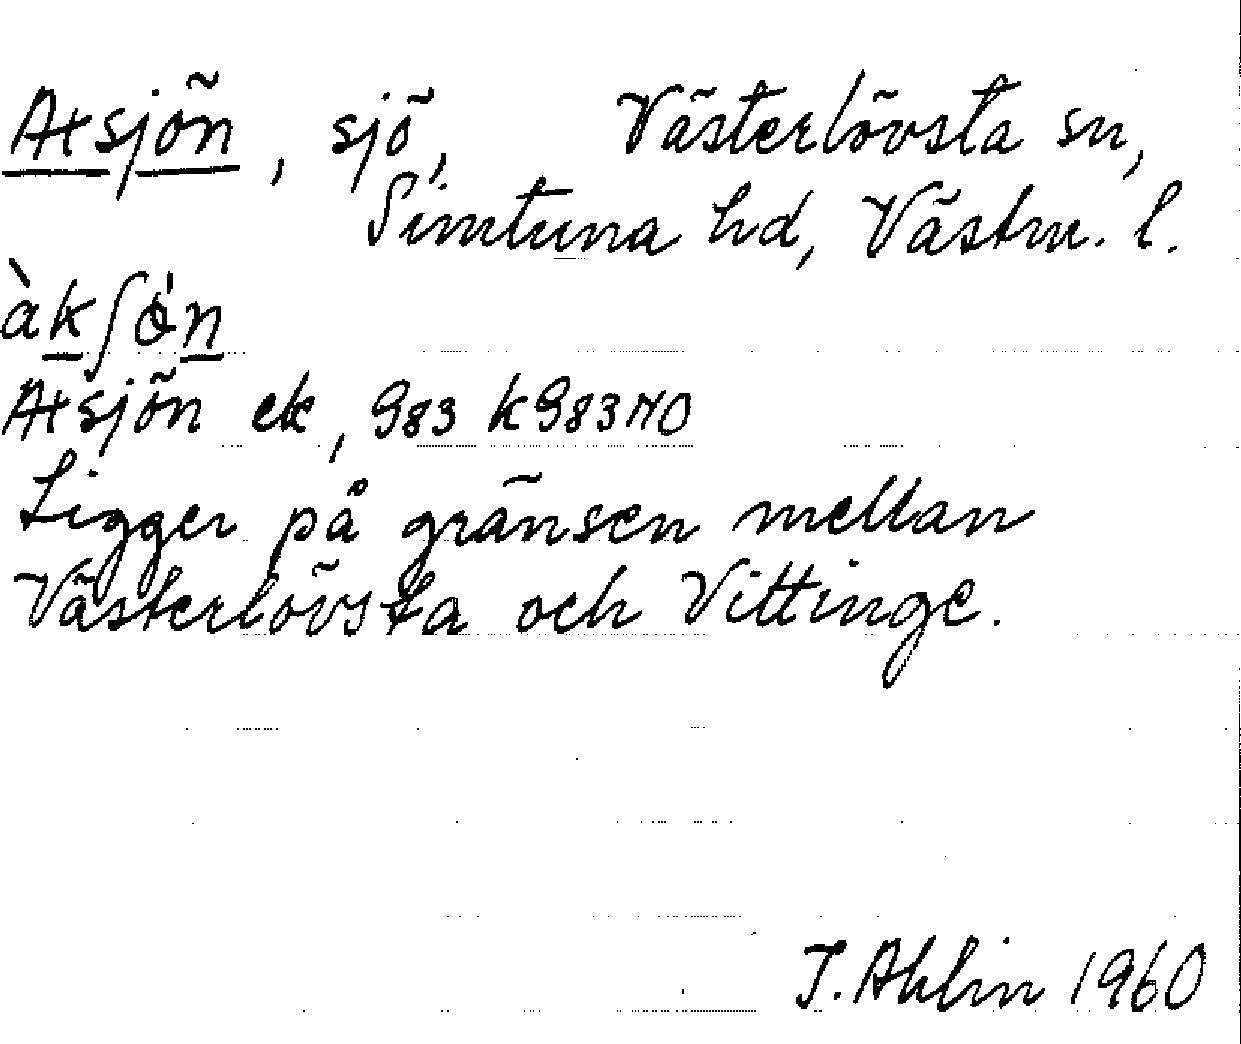 Axsjön, sjö, Västerlövsta sn,
Simtuna hd, Västm. l.
Axsjön ek, 983 k983 NO
Ligger på gränsen mellan
Västerlövsta och Vittinge.
T. Ahlin 1960